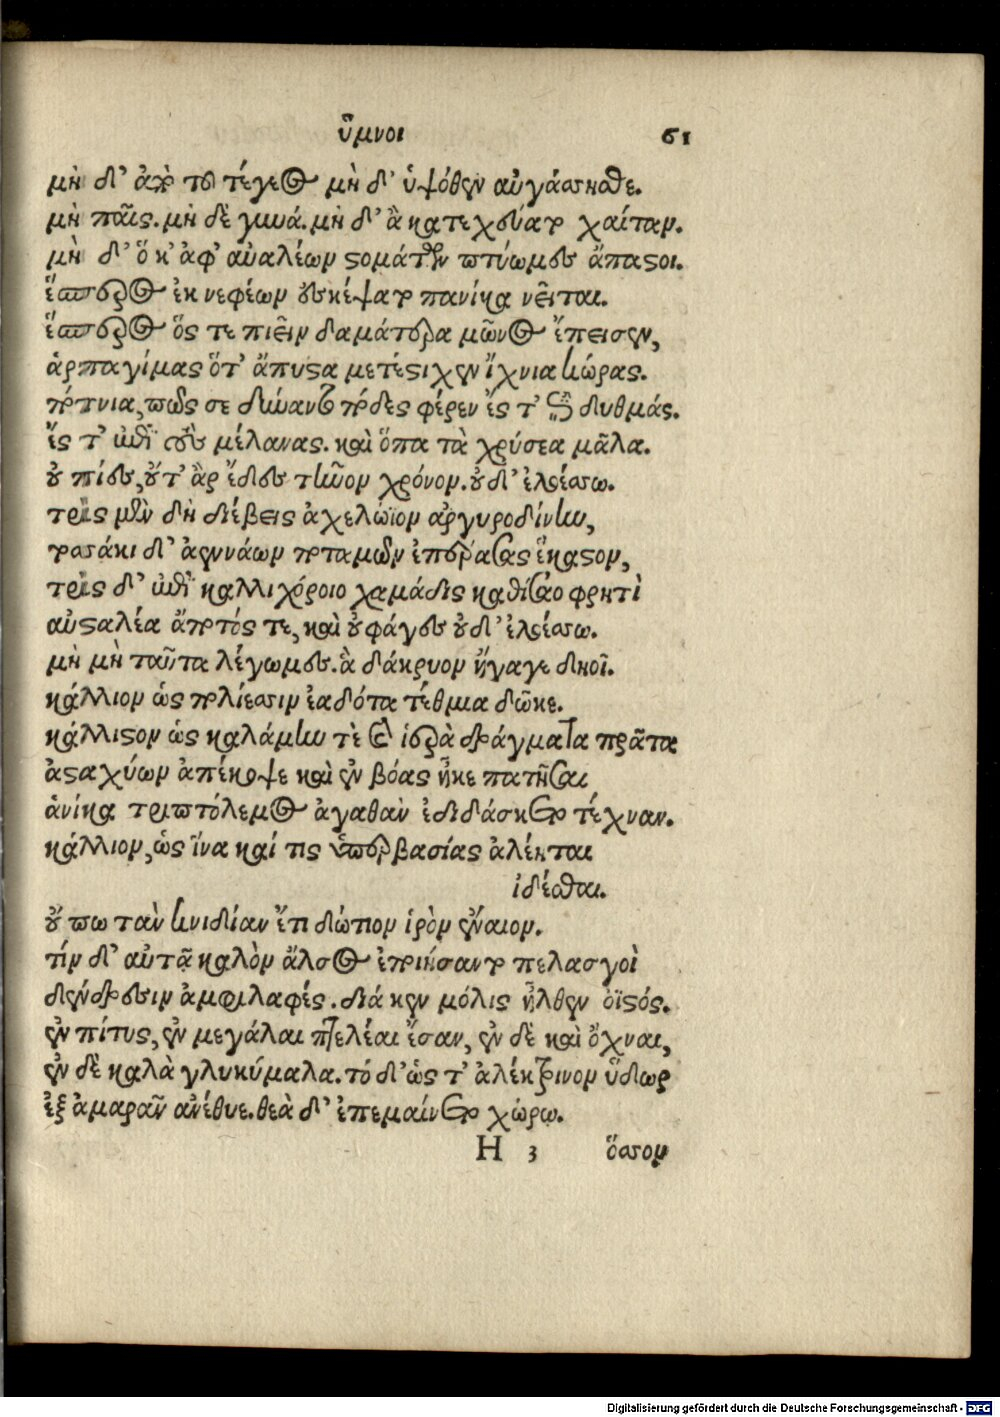 ὕμνοι 61
μὴ δ' ἀπὸ τοῦ τέγεος μὴ δ' ὑψόθεν αὐγάσησθε.
μὴ παῖς. μὴ δὲ γυνά. μὴ δ' ἃ κατεχεύατο χαίταν.
μὴ δ' ὅκ' ἀφ' αὐαλέων στομάτων πτύωμεν ἄπαστοι.
ἕσπερος ἐκ νεφέων ἐσκέψατο πανίκα νεῖται.
ἕσπερος ὅς τε πιεῖν δαμάτερα μῶνος ἔπεισεν,
ἁρπαγίμας ὅτ' ἄπυστα μετέστιχεν ἴχνια κώρας.
πότνια, πῶς σε δύναντο πόδες φέρεν ἔς τ' ἐπὶ δυθμάς.
ἔς τ' ἐπὶ τοὺς μέλανας. καὶ ὅπα τὰ χρύσεα μᾶλα.
οὐ πίες, οὔτ' ἂρ ἔδες τῆνον χρόνον. οὐδ' ἐλοέσσω.
τρὶς μὲν δὴ διέβεις ἀχελώϊον ἀργυροδίνην,
τοσάκι δ' ἀεννάων ποταμῶν ἐπέρασας ἕκαστον,
τρὶς δ' ἐπὶ καλλιχόροιο χαμάδις καθίσσαο φρητὶ
αὐσταλέα ἄποτός τε, καὶ οὐ φάγες οὐδ' ἐλοέσσω.
μὴ μὴ ταῦτα λέγωμες. ἃ δάκρυον ἤγαγε δηοῖ.
κάλλιον ὡς πολίεσσιν ἑαδότα τέθμια δῶκε.
κάλλιστον ὡς καλάμην τὲ καὶ ἱερὰ δράγματα πρᾶτα
ἀσταχύων ἀπέκοψε καὶ ἐν βόας ἧκε πατῆσαι
ἁνίκα τριπτόλεμος ἀγαθὰν ἐδιδάσκετο τέχναν.
κάλλιον, ὡς ἵνα καί τις ὑπερβασίας ἀλέηται
ἰδέσθαι.
οὔπω τὰν κνιδίαν ἔτι δώτιον ἱρὸν ἔναιον.
τίν δ' αὐτᾷ καλὸν ἄλσος ἐποιήσαντο πελασγοὶ
δένδρεσιν ἀμφιλαφές. διά κεν μόλις ἦλθεν ὀϊστός.
ἐν πίτυς, ἐν μεγάλαι πτελέαι ἔσαν, ἐν δὲ καὶ ὄχναι,
ἐν δὲ καλὰ γλυκύμαλα. τό δ' ὡς τ' ἀλέκτρινον ὕδωρ
ἐξ ἀμαρᾶν ἀνέθυε. θεὰ δ' ἐπεμαίνετο χώρῳ.
H 3 ὅσσον
Digitalisierung gefördert durch die Deutsche Forschungsgemeinschaft - DFG